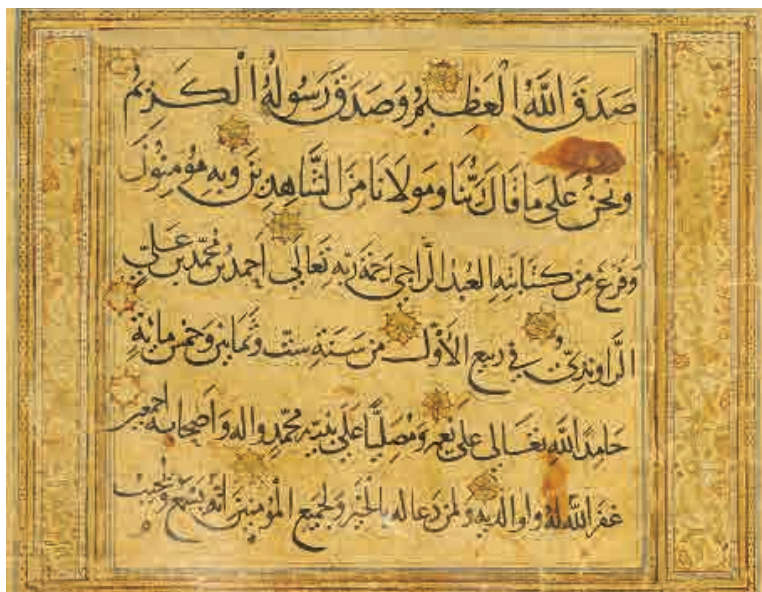 صَدَقَ اللّٰهُ الْعَظِيمُ وَصَدَقَ رَسُولُهُ الْكَرِيمُ
ونحنُ على ما قال ربُّنا ومولانا مِنَ الشَّاهِدِينَ وبه مُؤمِنُونَ
وَفَرَغَ مِنْ كتابَتِهِ العبدُ الرَّاجي رحمةَ ربِّهِ تَعَالَى أحمدُ بنُ مُحَمّدِ بنِ عَلِيّ
الرَّاوندِيّ في ربيع الأوّل من سَنَةِ ستّ وثَمانين وخمس مائةِ
حامدًا للّٰهِ تعالى على نعمه ومُصلِّيًا على نبيّه مُحَمّدٍ واله وأصحابه اجمعين
غفر اللّٰه لهُ ولوالديه ولمن دعا له بالخير ولجميع المؤمنين انّه يسمع ويجيب